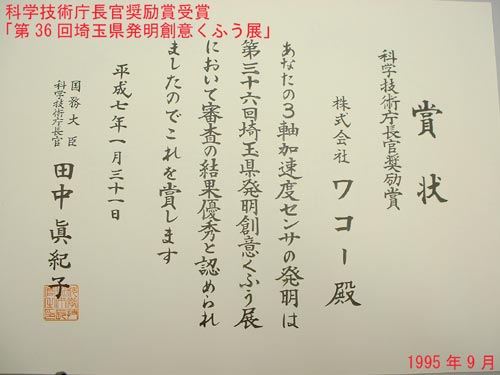 科学技術庁長官奨励賞受賞
「第36回埼玉県発明創意くふう展」
賞状
科学技術庁長官奨励賞
株式会社 ワコー殿
あなたの3軸加速度センサの発明は
第三十六回埼玉県発明創意くふう展
において審査の結果優秀と認められ
ましたのでこれを賞します
平成七年一月三十一日
国務大臣
科学技術庁長官
田中眞紀子
1995年9月